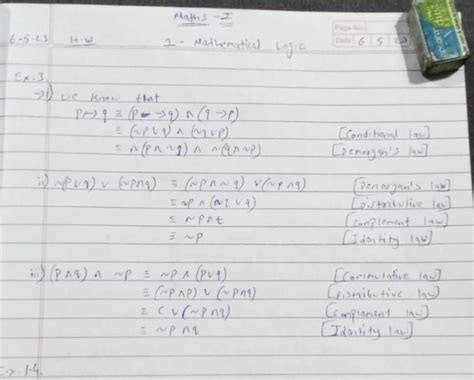 Maths - I
Page No.
6-5-23 H.W 1 - Mathematical Logic Date 6 5 23
Ex. 3
→ i) we know that
p↔q ≡ (p→q) ∧ (q→p)
≡ (~p∨q) ∧ (~q∨p) [Conditional law]
≡ ~(p∧~q) ∧ ~(q∧~p) [Demorgan's law]
ii) ~(p∨q) ∨ (~p∧q) ≡ (~p∧~q) ∨ (~p∧q) [Demorgan's law]
≡ ~p ∧ (~q∨q) [Distributive law]
≡ ~p∧t [Complement law]
≡ ~p [Identity law]
iii) (p∧q) ∧ ~p ≡ ~p ∧ (p∨q) [Commutative law]
≡ (~p∧p) ∨ (~p∧q) [Distributive law]
≡ C ∨ (~p∧q) [Complement law]
≡ ~p ∧q [Identity law]
Ex. 1.4